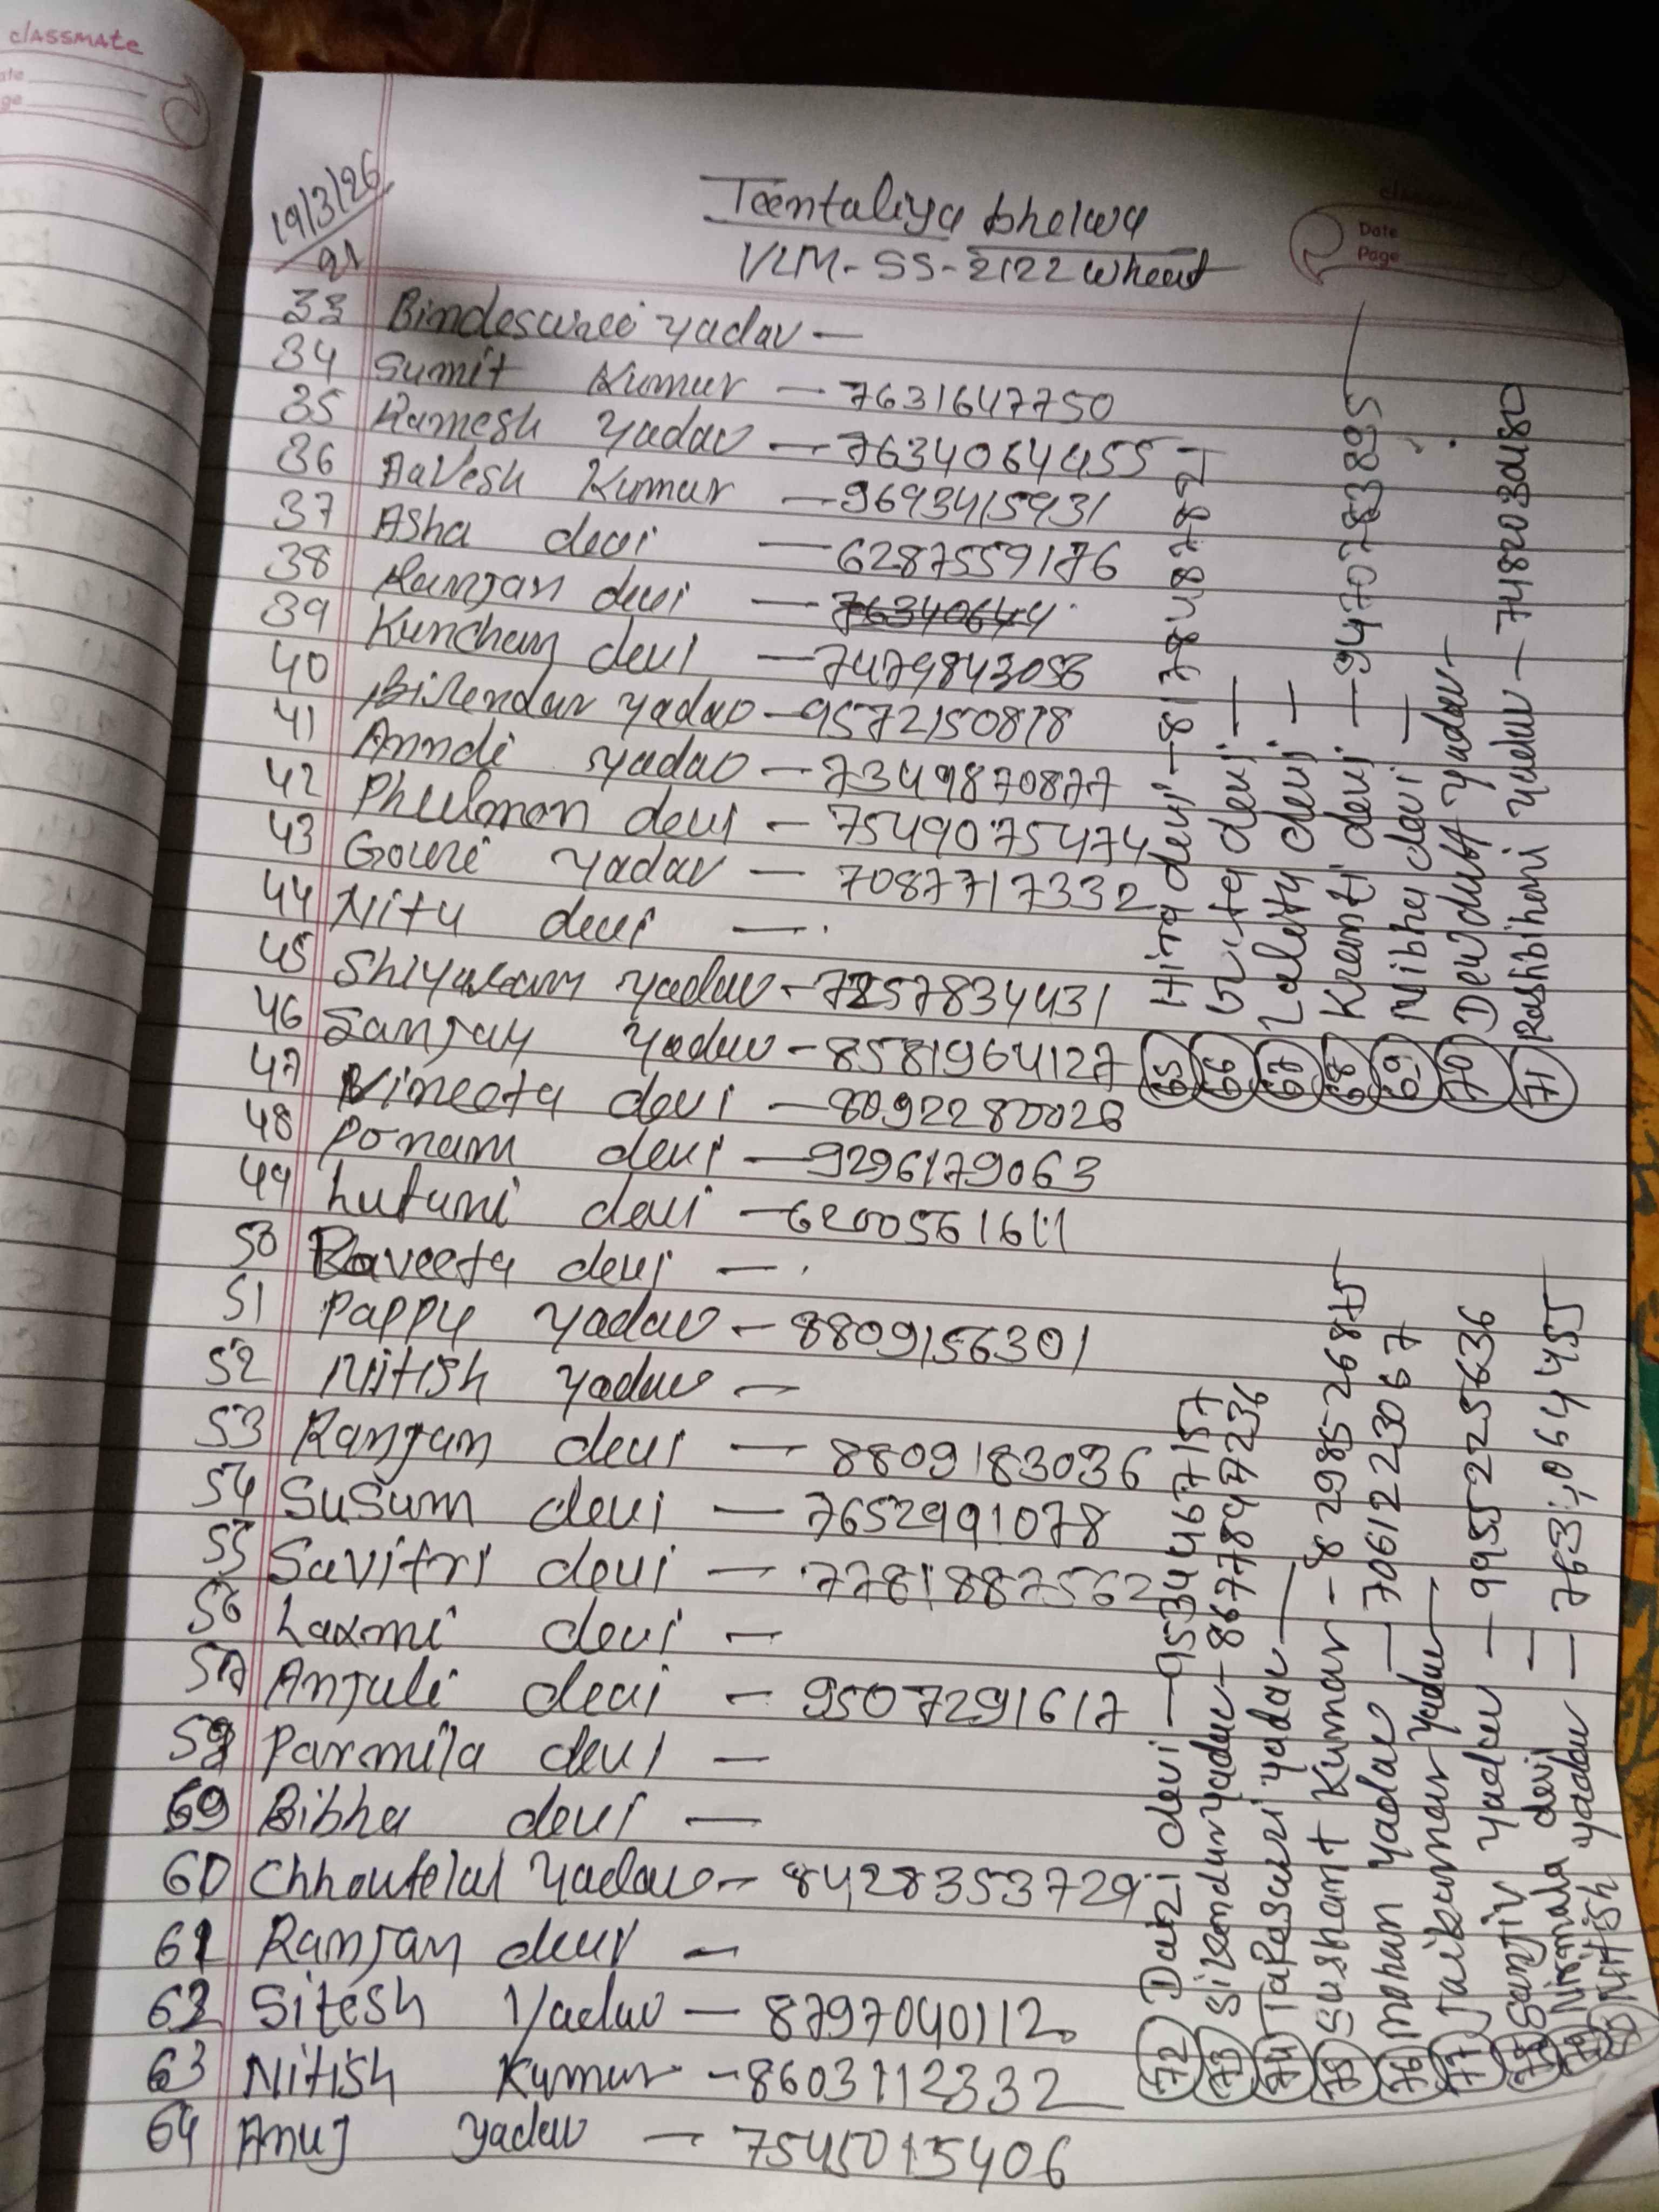 classmate
19/3/26
21
Teentaliya bhelwa
VLM-SS-2122 wheat
Date
Page
33 Bindeswree yadav —
34 Sumit Kumur — 7631647750
35 Ramesh yadav — 7634064455
36 AaVesh Kumur — 9693415931
37 Asha devi — 6287559176
38 Ranjan devi —
39 Kunchan devi — 7479843056
40 Birendar yadav — 9572150818
41 Anndi yadav — 7349870877
42 Phulmon devi — 7549075474
43 Gowri yadav — 7087717332
44 Nitu devi —
45 Shiyaram yadav — 7257834431
46 Sanjay yadav — 8581964127
47 Vineeta devi — 8092280026
48 Ponam devi — 9296179063
49 Lutuni devi — 6200561611
50 Raveeta devi —
51 Pappy yadav — 8809156301
52 Nitish yadav —
53 Ranjan devi — 8809183036
54 SuSum devi — 7652991078
55 Savitri devi — 7781887562
56 Laxmi devi —
57 Anjuli devi — 9507291617
58 Parmila devi —
69 Bibha devi —
60 Chhoutelal yadav — 8428353729
61 Ranjan devi —
62 Sitesh Yadav — 8797040112
63 Nitish Kumur — 8603112332
64 Anuj yadav — 7545015406
65 Hira devi — 8178487821
66 devi —
67 Lality devi —
68 Kranti devi — 9470783895
69 Nibha devi —
70 Devdutt yadav —
71 Rashbihari yadav — 7482030480
72 Daizi devi — 9534467157
73 Sikandur yadav — 8677847236
74 Tapesawri yadav —
75 Sushant Kumar — 8298526875
76 Mohan yadav — 7061223067
77 Jaikumar yadav —
78 Sanjiv yadav — 9955225636
79 Nirmala devi —
80 Nitish yadav — 7634064455